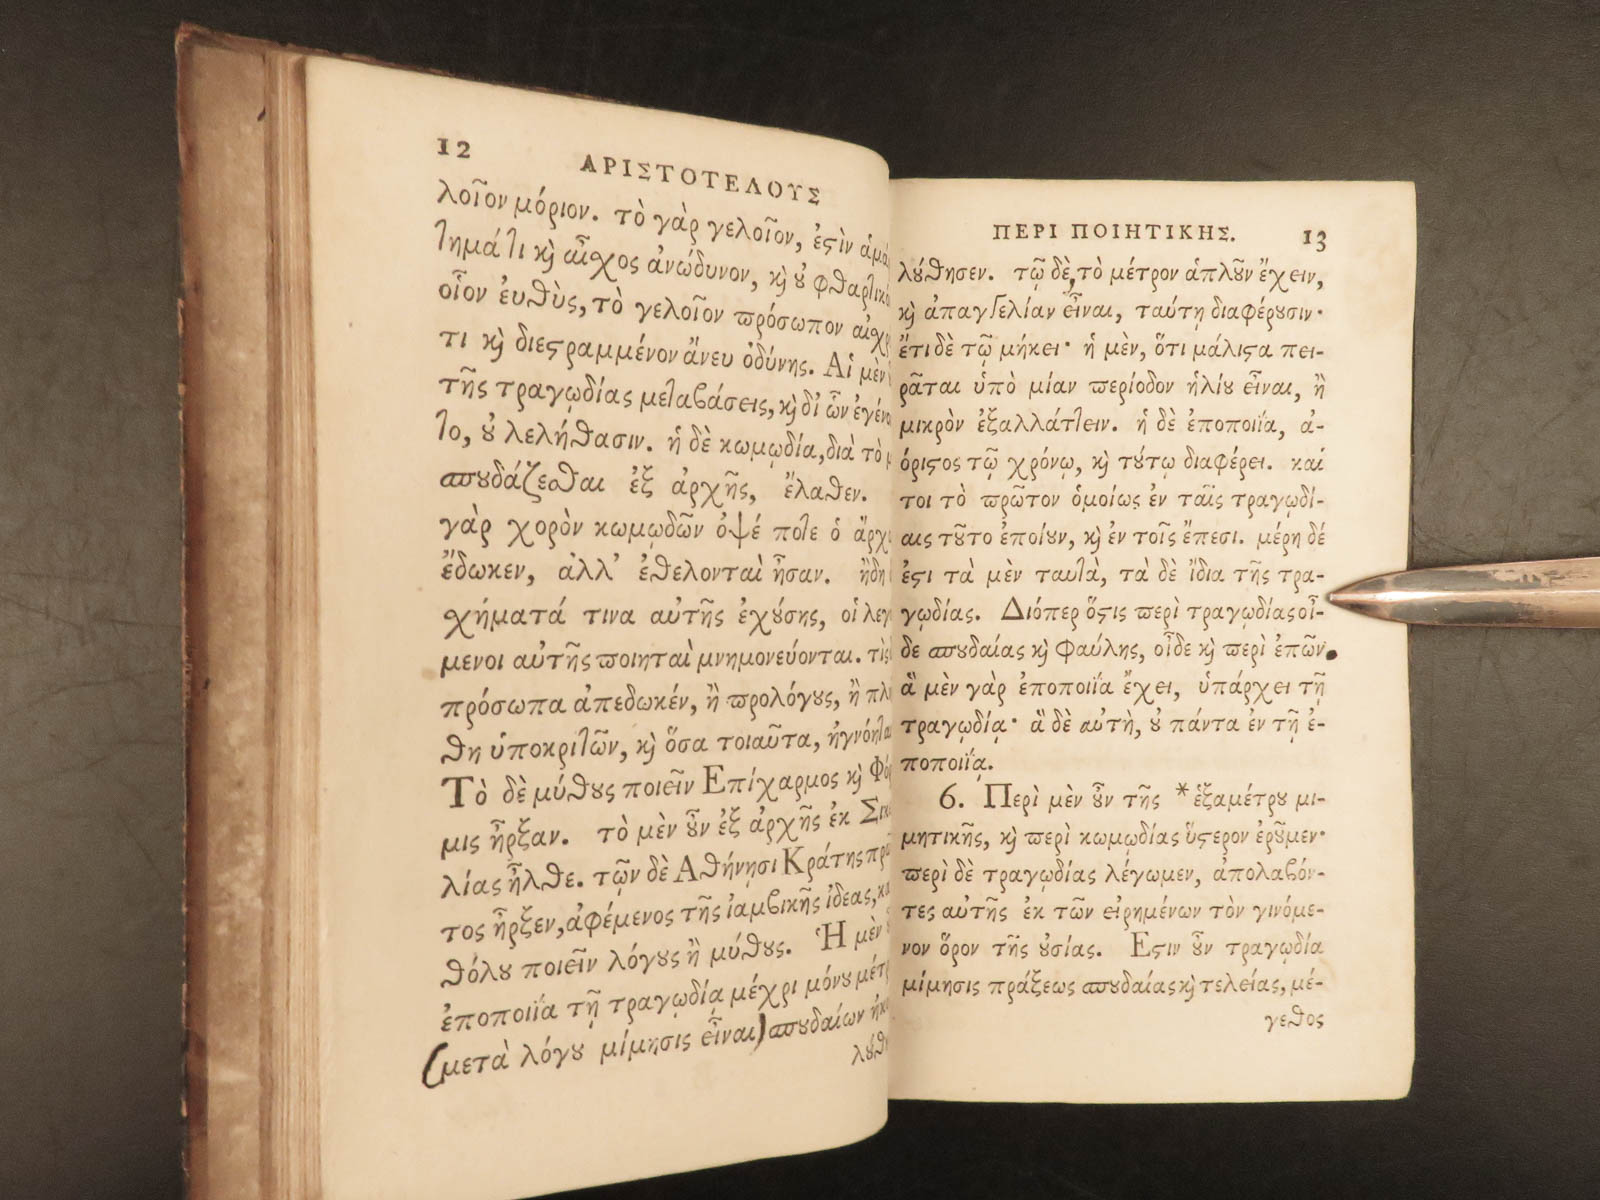 12
ΑΡΙΣΤΟΤΕΛΟΥΣ
λοῖον μόριον. τὸ γὰρ γελοῖον, ἐϛὶν ἁμά
τημά τι κỳ αἶσχος ἀνώδυνον, κỳ ȣ̓ φθαρτικό
οἷον ἐυθὺς, τὸ γελοῖον πρόσωπον αἰσχρ
τι κỳ διεϛραμμένον ἄνευ ὀδύνης. Αἱ μὲν
τῆς τραγῳδίας μεταβάσεις, κỳ δι' ὧν ἐγένο
το, ȣ̓ λελήθασιν. ἡ δὲ κωμῳδία, διὰ τὸ μ
σπȣδάζεσθαι ἐξ ἀρχῆς, ἔλαθεν.
γὰρ χορὸν κωμῳδῶν ὀψέ ποτε ὁ ἄρχ
ἔδωκεν, ἀλλ' ἐθελονταὶ ἦσαν. ἤδη
σχήματά τινα αὐτῆς ἐχȣ́σης, οἱ λεγ
μενοι αὐτῆς ποιηταὶ μνημονεύονται. τὶς
πρόσωπα ἀπεδωκέν, ἢ προλόγȣς, ἢ πλή
θη ὑποκριτῶν, κỳ ὅσα τοιαῦτα, ἠγνόηται
Τὸ δὲ μύθȣς ποιεῖν Επίχαρμος κỳ Φόρ
μις ἦρξαν. τὸ μὲν ȣ̓͂ν ἐξ ἀρχῆς ἐκ Σικε
λίας ἦλθε. τῶν δὲ Αθήνησι Κράτης πρῶ
τος ἦρξεν, ἀφέμενος τῆς ἰαμβικῆς ἰδεας, κα
θόλȣ ποιεῖν λόγȣς ἢ μύθȣς. Ἡ μὲν
ἐποποιΐα τῇ τραγῳδίᾳ μέχρι μόνȣ μέτρ
(μετὰ λόγȣ μίμησις εἶναι) σπȣδαίων ἠκο
λȣ́θη
ΠΕΡΙ ΠΟΙΗΤΙΚΗΣ.
13
λȣ́θησεν. τῷ δὲ, τὸ μέτρον ἁπλȣ͂ν ἔχειν,
κỳ ἀπαγγελίαν εἶναι, ταύτῃ διαφέρȣσιν·
ἔτι δὲ τῷ μήκει· ἡ μὲν, ὅτι μάλιϛα πει-
ρᾶται ὑπὸ μίαν περίοδον ἡλίȣ εἶναι, ἢ
μικρὸν ἐξαλλάττειν. ἡ δὲ ἐποποιΐα, ἀ-
όριϛος τῷ χρόνῳ, κỳ τȣ́τῳ διαφέρει. καί
τοι τὸ πρῶτον ὁμοίως ἐν ταῖς τραγῳδί-
αις τȣ͂το ἐποίȣν, κỳ ἐν τοῖς ἔπεσι. μέρη δέ
ἐϛι τὰ μὲν ταυτὰ, τὰ δὲ ἴδια τῆς τρα-
γῳδίας. Διόπερ ὅϛις περὶ τραγῳδίας οἶ-
δε σπȣδαίας κỳ φαύλης, οἶδε κỳ περὶ ἐπῶν.
ἃ μὲν γὰρ ἐποποιΐα ἔχει, ὑπάρχει τῇ
τραγῳδίᾳ· ἃ δὲ αὐτὴ, ȣ̓ πάντα ἐν τῇ ἐ-
ποποιΐᾳ.
6. Περὶ μὲν ȣ̓͂ν τῆς *ἑξαμέτρȣ μι-
μητικῆς, κỳ περὶ κωμῳδίας ὕϛερον ἐρȣ͂μεν·
περὶ δὲ τραγῳδίας λέγωμεν, ἀπολαβόν-
τες αὐτῆς ἐκ τῶν εἰρημένων τὸν γινόμε-
νον ὅρον τῆς ȣ̓σίας. Εϛιν ȣ̓͂ν τραγῳδία
μίμησις πράξεως σπȣδαίας κỳ τελείας, μέ-
γεθος